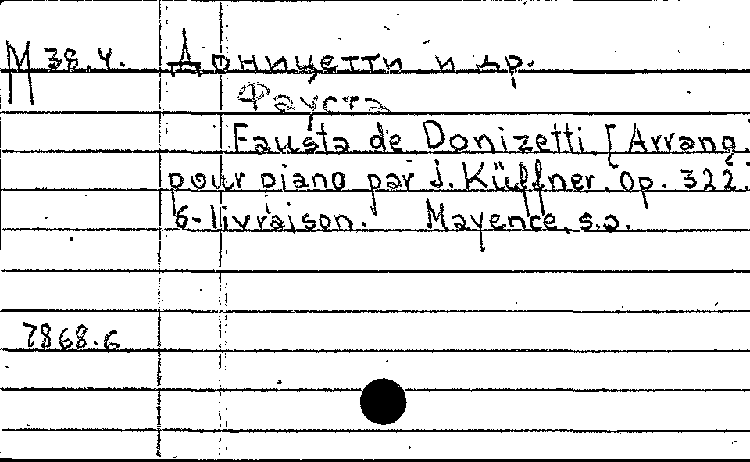 М 38.4. Доницетти и др.
Фауста
Fausta de Donizetti [Arrang.
pour piano par J. Küffner. Op. 322.
6-livraison. Mayence, s.a.
7868.6